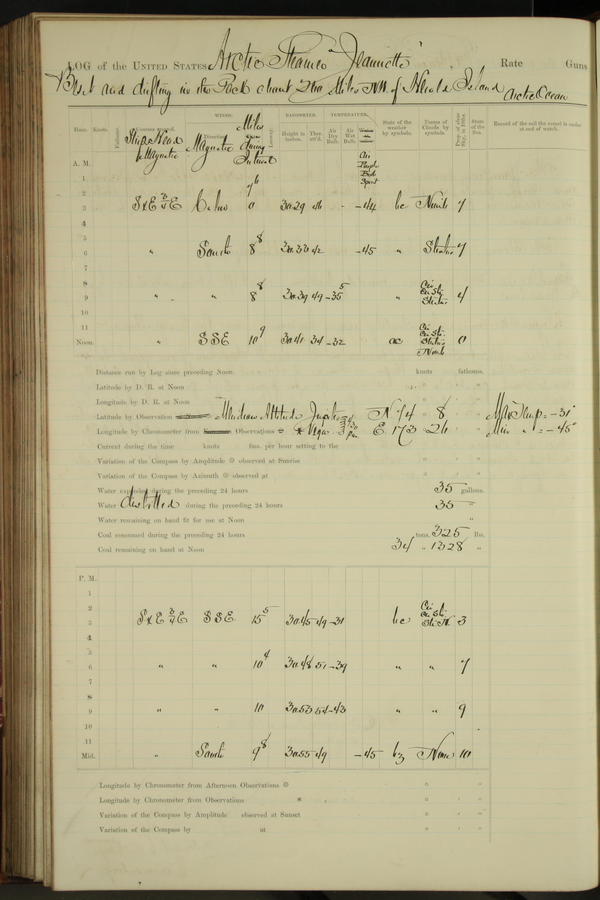 LOG of the UNITED STATES Arctic Steamer "Jeannette" Rate Guns
Beset and drifting in the Pack about 240 Miles NW. of Herald Island Arctic Ocean
Hour. Knots. Fathoms. Ship's Head by Magnetic WINDS. Direction Magnetic Miles during Leeway. BAROMETER. Height in inches. Ther. att'd. TEMPERATURE. Air Dry Bulb. Air Wet Bulb. State of the weather by symbols. Forms of Clouds by symbols. State of the Sea. Record of the sail the vessel is under at end of watch.
A. M.
1
2
3 S x E ¾ E Calm 0 30.29 46 - -44 bc Nimb 7
4
5
6 " South 8 8 30.33 42 -45 " Stratus 7
7
8
9 " " 8 8 30.39 49 -35 5 " Cir Cir. St. Stratus 4
10
11
Noon. " SSE 10 9 30.41 34 -32 oc Cir Cir. St. Stratus Nimb 0
Distance run by Log since preceding Noon knots fathoms.
Latitude by D. R. at Noon ° ' "
Longitude by D. R. at Noon ° ' "
Latitude by Observation Meridian Altitude Jupiter N 74 8 Max Temp = -31°
Longitude by Chronometer from Observations * Vega E. 173 26 Min " = -45°
Current during the time knots fms. per hour setting to the
Variation of the Compass by Amplitude observed at Sunrise ° ' "
Variation of the Compass by Azimuth observed at ° ' "
Water expended during the preceding 24 hours 35 gallons.
Water distilled during the preceding 24 hours 35 "
Water remaining on hand fit for use at Noon "
Coal consumed during the preceding 24 hours tons. 325 lbs.
Coal remaining on hand at Noon 34 " 1328 "
P. M.
1
2
3 S x E ¾ E SSE 15 5 30.45 49 -31 bc Cir Cir. St. 3
4
5
6 " " 10 4 30.48 51 -39 " " 7
7
8
9 " " 10 30.53 54 -43 " " 9
10
11
Mid. " South 9 8 30.55 49 -45 bz None 10
Longitude by Chronometer from Afternoon Observations ° ' "
Longitude by Chronometer from Observations * ° ' "
Variation of the Compass by Amplitude observed at Sunset ° ' "
Variation of the Compass by at ° ' "